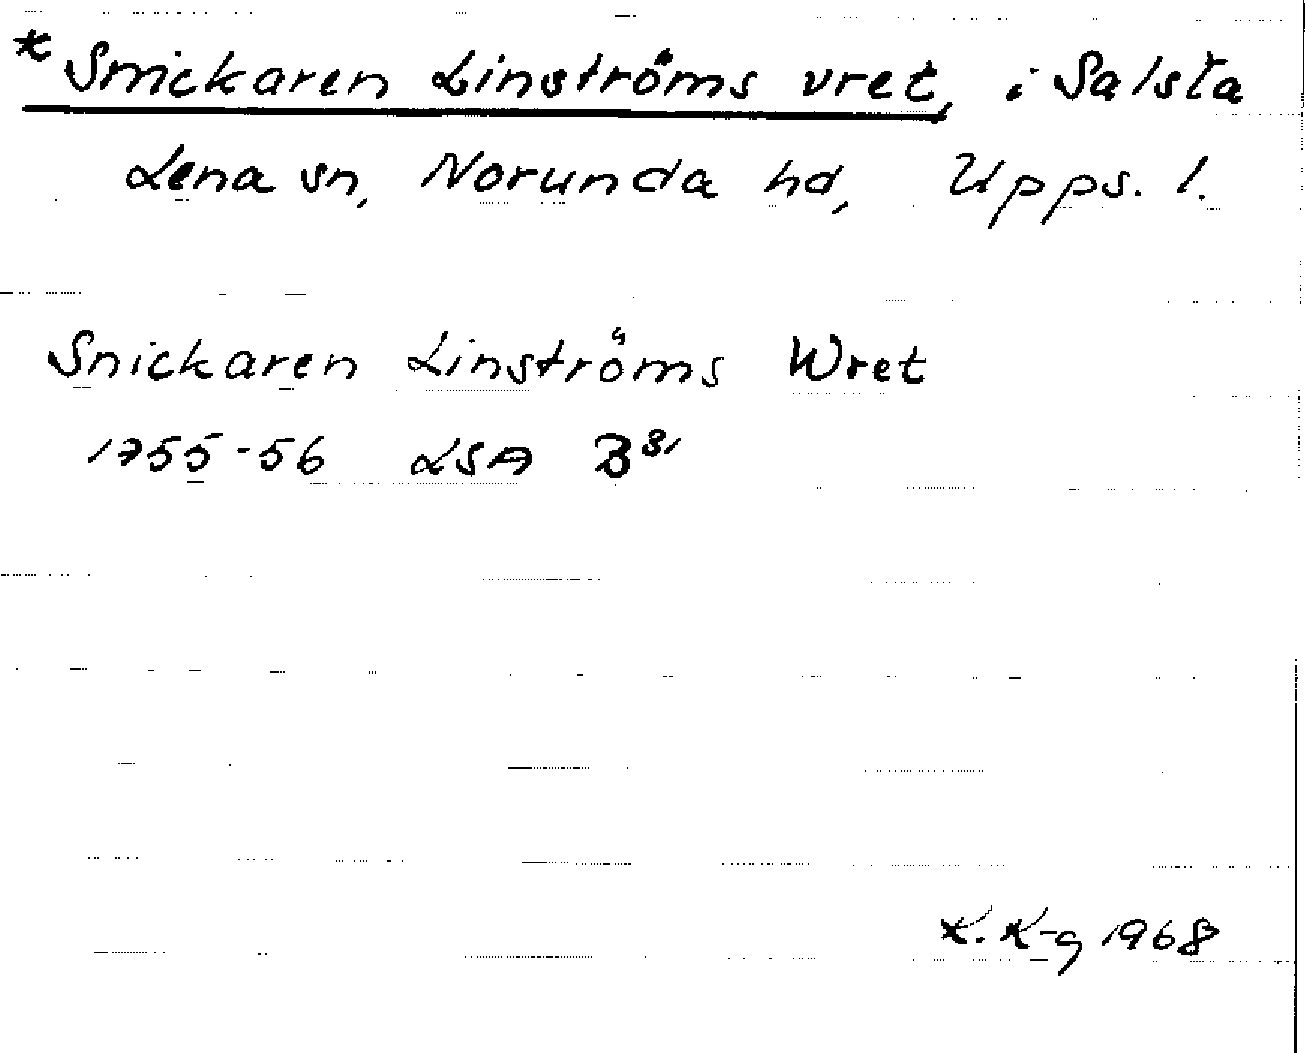 * Snickaren Linströms vret, i Salsta
Lena sn, Norunda hd, Upps. l.
Snickaren Linströms Wret
1755-56 LSA B³¹
K. K-g 1968